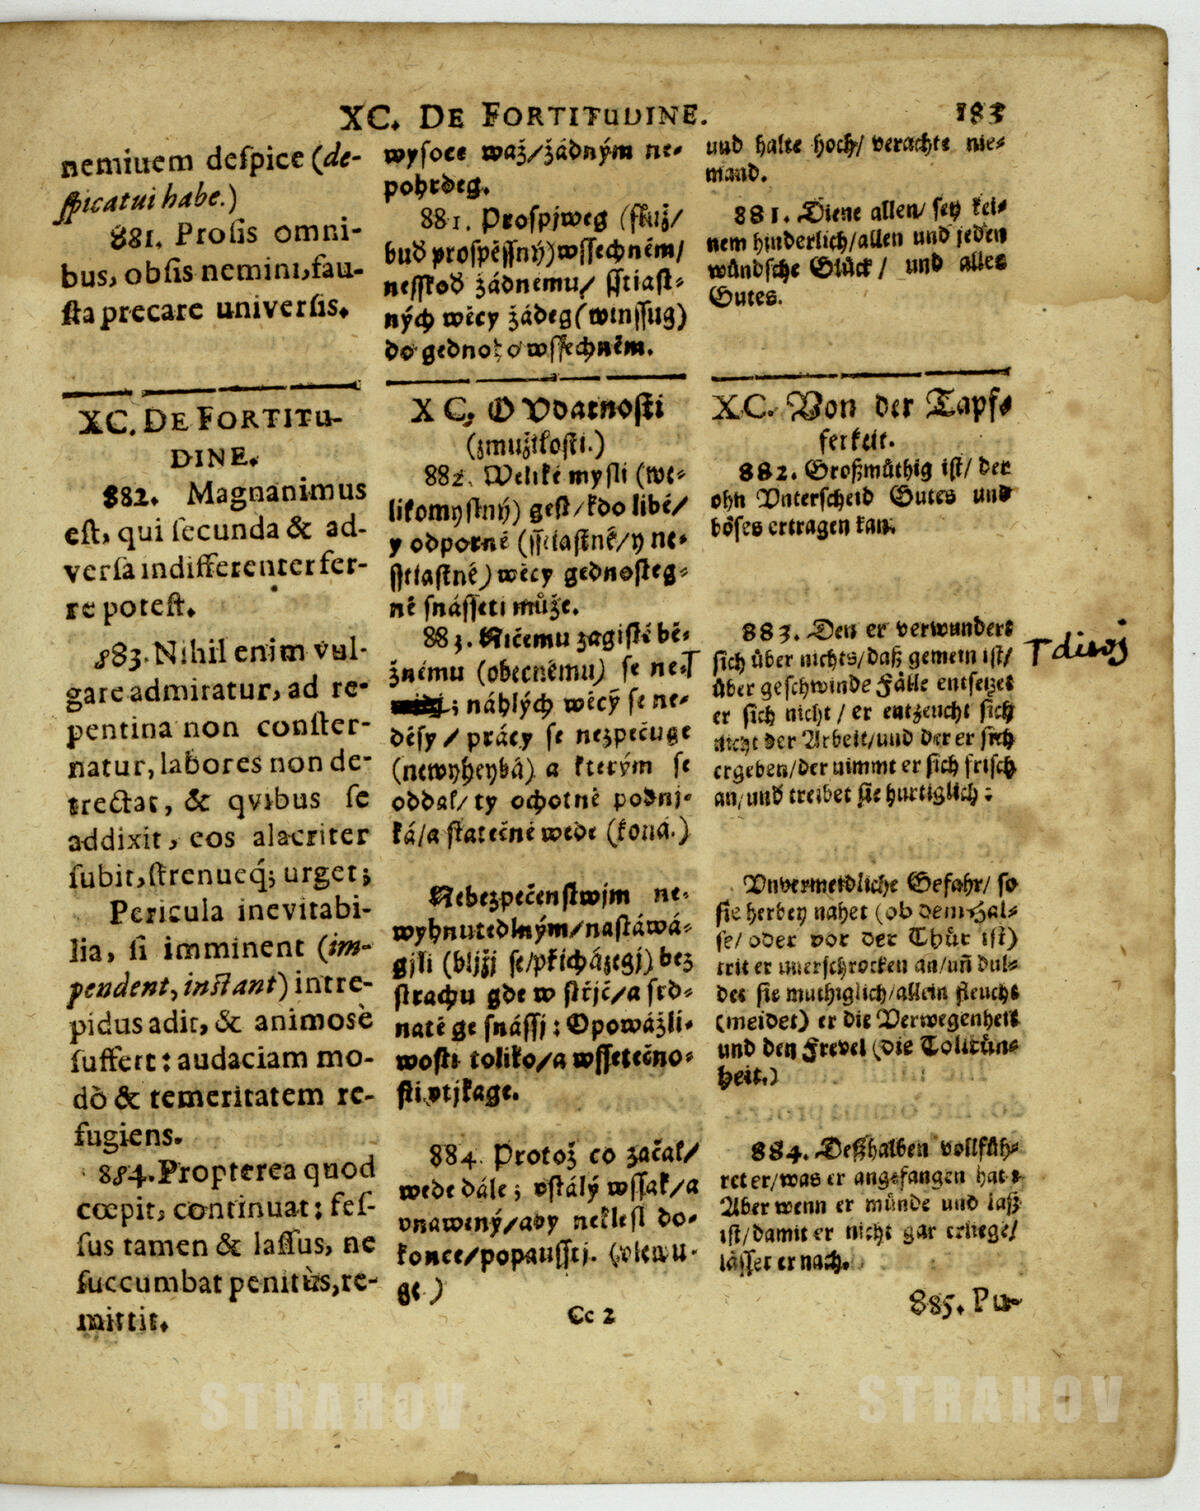 XC. DE FORTITUDINE. 183
neminem despice (de-
spicatui habe.)
881. Prosis omni-
bus, obsis nemini, fau-
sta precare universis.
XC. DE FORTITU-
DINE.
882. Magnanimus
est, qui secunda & ad-
versa indifferenter fer-
re potest.
883. Nihil enim vul-
gare admiratur, ad re-
pentina non conster-
natur, labores non de-
trectat, & qvibus se
addixit, eos alacriter
subit, strenueq; urget;
Pericula inevitabi-
lia, si imminent (im-
pendent, instant) intre-
pidus adit, & animosè
suffert: audaciam mo-
dò & temeritatem re-
fugiens.
884. Propterea quod
cœpit, continuat: fes-
sus tamen & lassus, ne
succumbat penitùs, re-
mittit.
wysoce waž/žádným ne-
pohrdeg.
881. Prospjweg (služ/
buď prospěssný) wssechněm/
nesskoď žádnemu/ sstiast-
ných wěcy žádeg (winssug)
do gednoho wssechněm.
XC. O Vdatnosti
(zmužilosti.)
882. Weliké mysli (we-
likomyslný) gest/kdo libé/
y odporné (sstiastné/y ne-
sstiastné) wěcy gednosteg-
ně snásseti může.
883. Ničemu zagisté bě-
žnému (obecnému) se ne-T
; náhlých wěcý se ne-
děsy/ prácy se nezpečuge
(newyheybá) a kterým se
oddal/ty ochotně podni-
ká/a statečně wede (koná.)
Nebezpečenstwjm ne-
wyhnutedlným/nastáwá-
gjli (bljžj se/přicházegj) bez
strachu gde w střjc/a srd-
natě ge snássj: Opowážli-
wosti toliko/a wssetečno-
sti vtjkage.
884. Protož co začal/
wede dále; vstálý wssak/a
vnawený/aby neklesl do-
konce/popausstj. (vlewu-
ge)
Cc 2
und halte hoch/ verachte nie-
mand.
881. Diene allen/ sey kei-
nem hinderlich/allen und jeden
wündsche Glück/ und alles
Gutes.
XC. Von der Tapf-
ferkeit.
882. Großmüthig ist/ der
ohn Vnterscheid Gutes und
böses ertragen kan.
883. Den er verwundert
sich über nichts/daß gemein ist/
über geschwinde Fälle entsetzet
er sich nicht/ er entzeucht sich
nicht der Arbeit/und der er sich
ergeben/der nimmt er sich frisch
an/und treibet sie hurtiglich:
T diwj
Vnvermeidliche Gefahr/ so
sie herbey nahet (ob dem Hal-
se/ oder vor der Thür ist)
trit er unerschrocken an/uñ dul-
det sie muthiglich/allein fleucht
(meidet) er die Verwegenheit
und den Frevel (die Tollkün-
heit.)
884. Deßhalben vollfüh-
ret er/was er angefangen hat:
Aber wenn er münde und laß
ist/damit er nicht gar erliege/
lässet er nach.
885. Pu-
STRAHOV STRAHOV